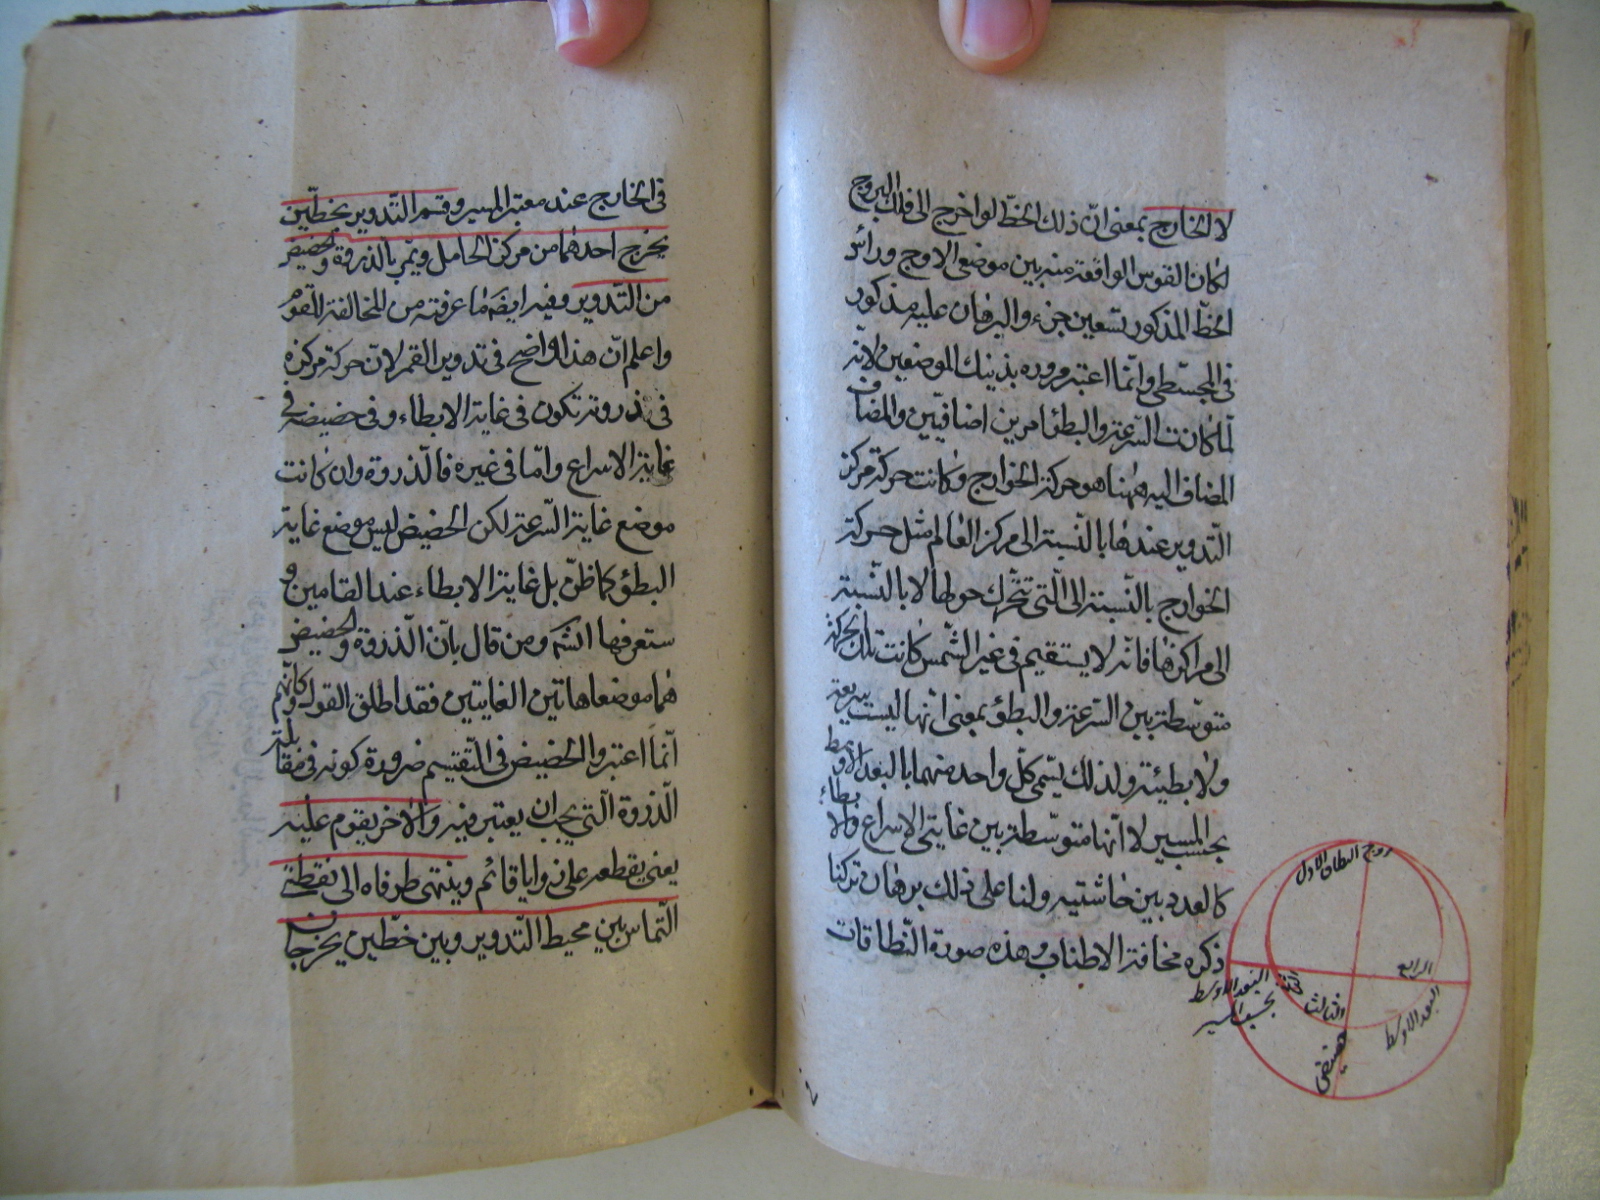 لا الخارج بمعنى انّ ذلك الخطّ لو اخرج الى فلك البروج
لكان القوس الواقعة منه بين موضعى الاوج و
الخطّ المذكور تسعين جزء والبرهان عليه مذكور
فى المجسطى وانّما اعتبر مروره بذينك الموضعين لانّه
لمّا كانت السّرعة والبطؤ امرين اضافيّين والمضاف
المضاف اليه ههنا هو حركة الخوارج وكانت حركة مركز
التدوير عندها بالنّسبة الى مركز العالم مثل حركة
الخوارج بالنّسبة الى الّتى تتحّرك حولها لا بالنّسبة
الى مراكزها فانّه لا يستقيم فى غير الشّمس كانت تلك الحركة
متوسّطة بين السّرعة والبطؤ بمعنى انّها ليست سريعة
ولا بطيئة ولذلك يسّمى كلّ واحد منهما بالبعد الاوسط
بحسب المسير لا انّها متوسّطة بين غايتى الاسراع والابطاء
كالعدد بين حاشتيه ولنا على ذلك برهان تركنا
ذكره مخافة الاطناب وهذه صورة النّطاقات
النطاق الاول
الرابع
البعد الاوسط
الثالث
البعد الاوسط
بحسب المسير
حضيض
فى الخارج عند معتبر المسير وقسم التّدوير بخطّين
يخرج احدهما من مركز الحامل ويمّر بالذروة والحضيض
من التّدوير وفيه ايضًا ما عرفته من المخالفة للقوم
واعلم انّ هذا واضح فى تدوير القمر لانّ حركة مركزه
فى ذروته تكون فى غاية الابطاء وفى حضيضه فى
غاية الاسراع وامّا فى غيره فالّذروة وان كانت
موضع غاية السّرعة لكن الحضيض ليس موضع غاية
البطؤ كما ظنّ بل غاية الابطاء عند القامين و
ستعرفها ومن قال بانّ الّذروة والحضيض
هما موضعا هاتين الغايتين فقد اطلق القول وكانّهم
انّما اعتبروا الحضيض فى التّقسيم ضرورة كونه فى مقابلة
الّذروة الّتى يجب ان يعتبر فيه والاخر يقوم عليه
يعنى يقطعه على زوايا قائم وينتهى طرفاه الى نقطتى
التّماس بين محيط التّدوير وبين خطّين يخرجان